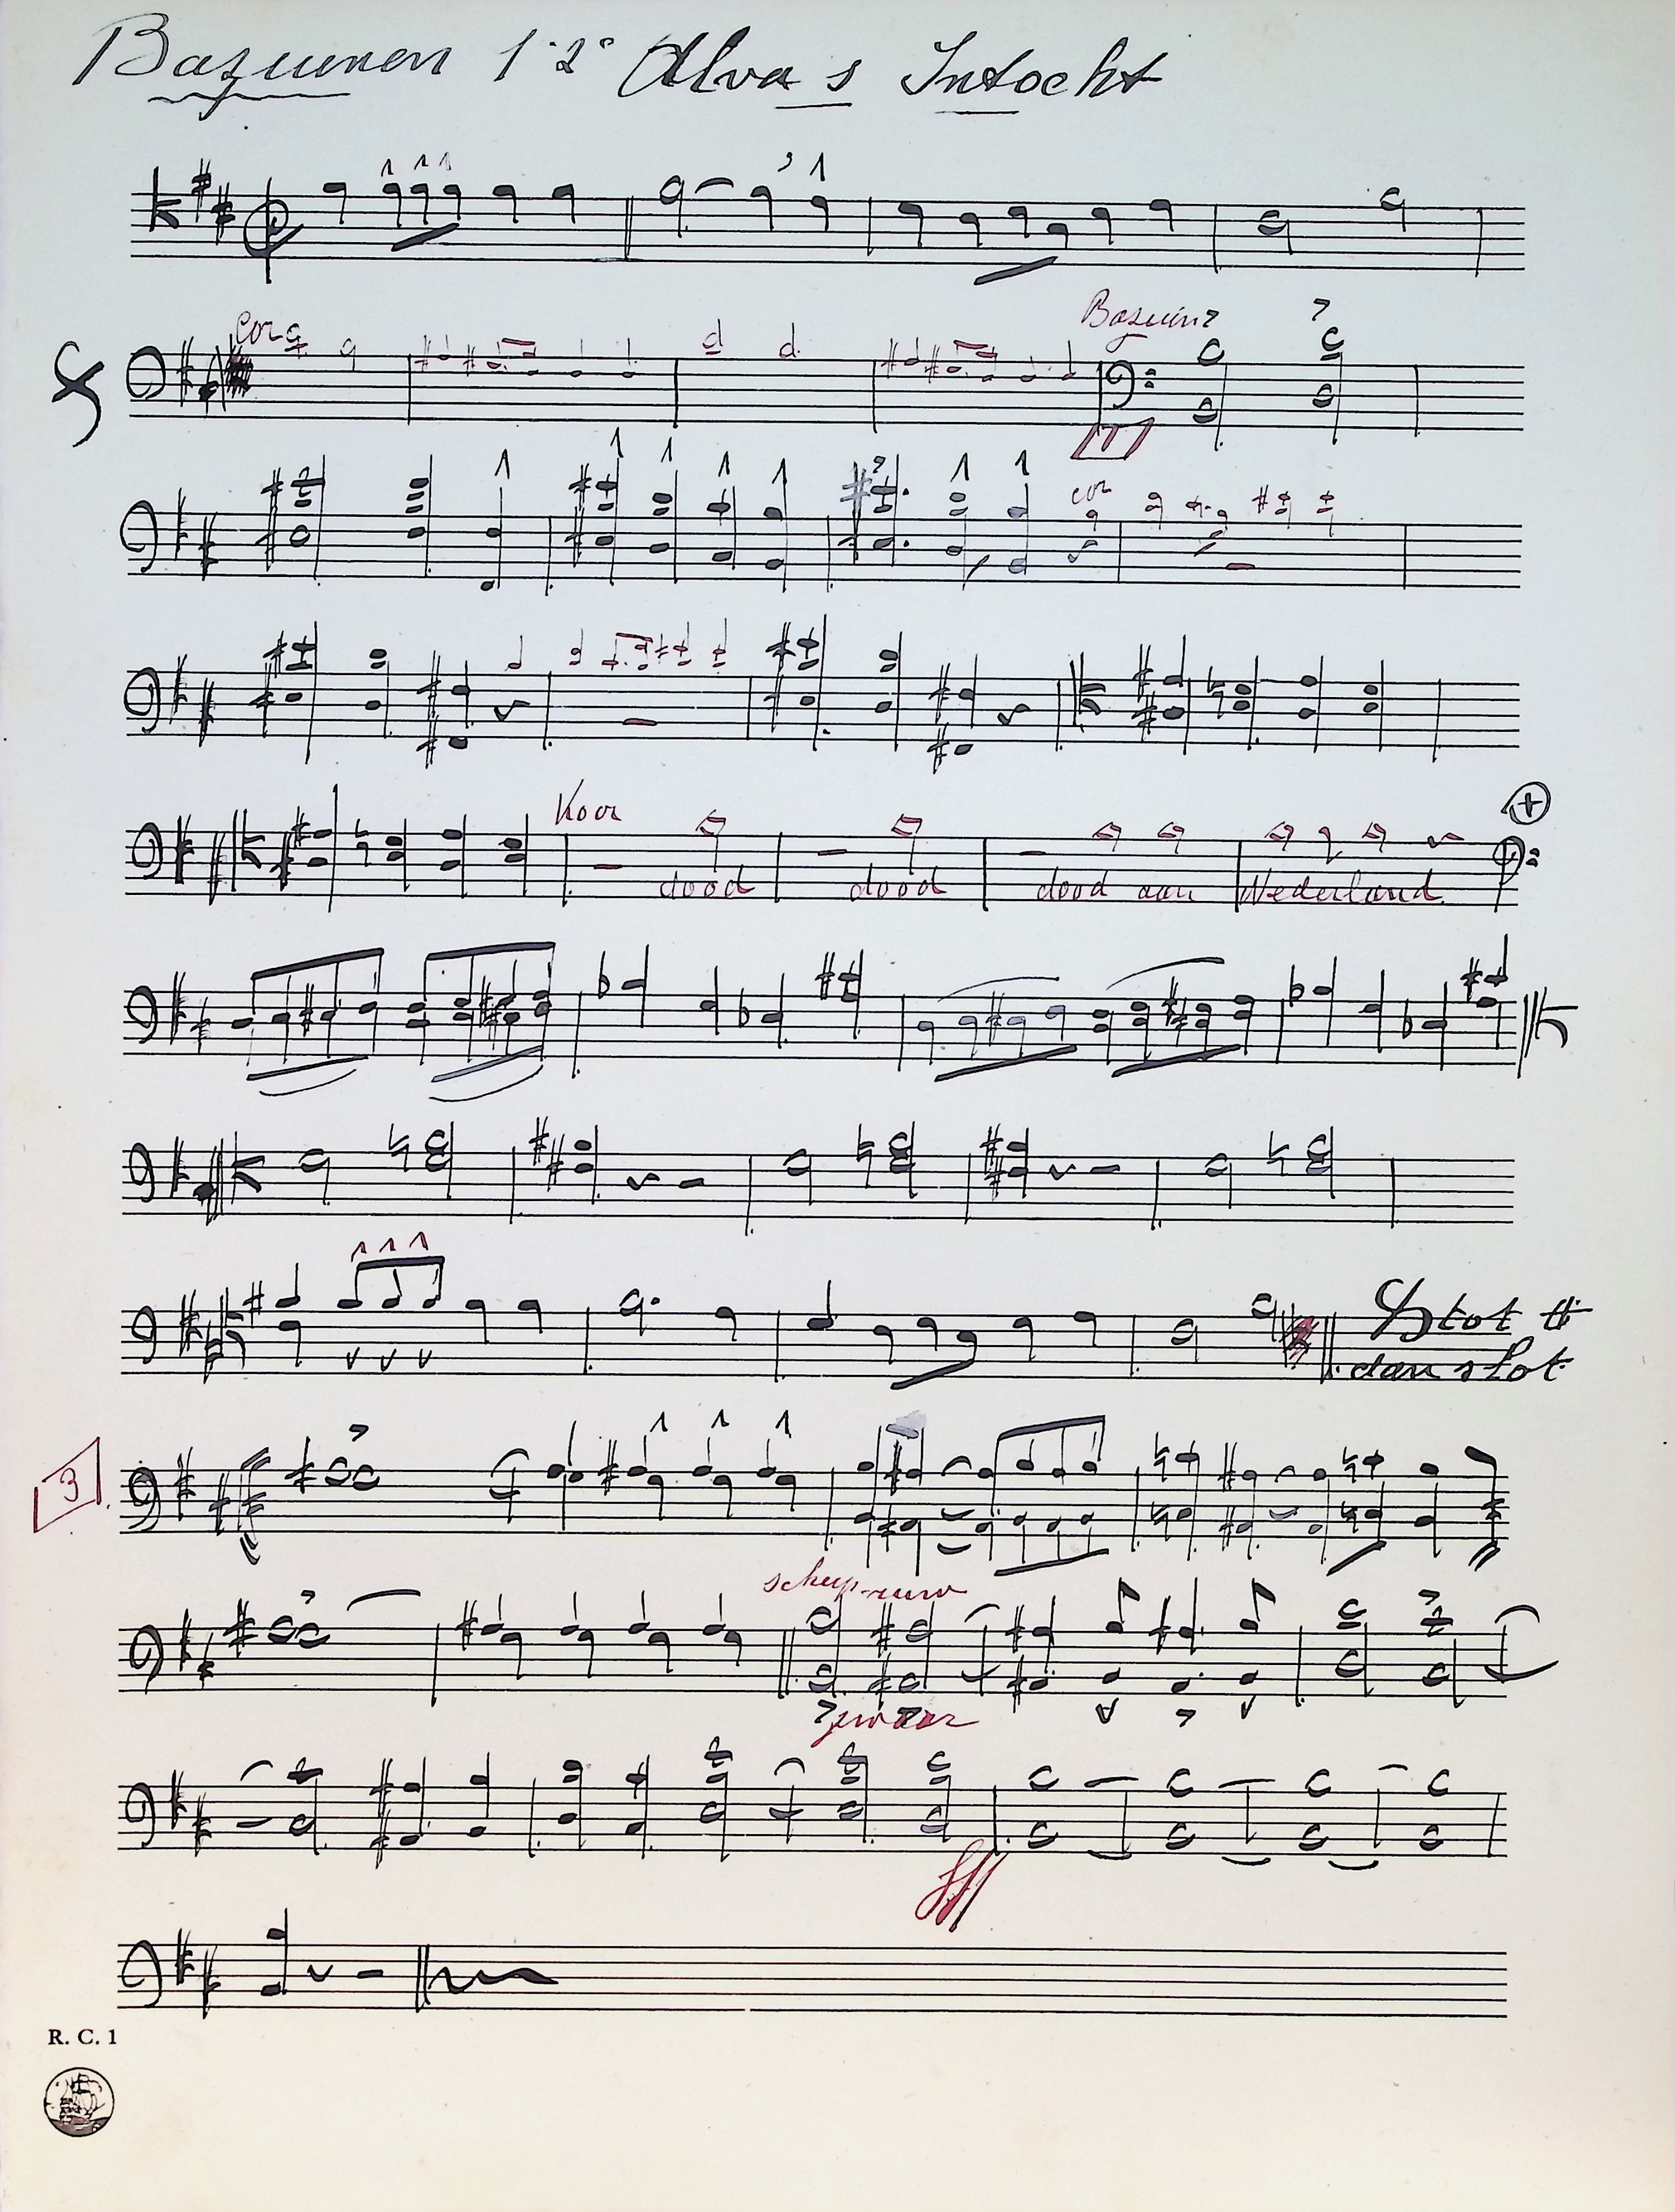 Bazuinen 1e 2e Alva's Intocht
cor
Bazuin
1
cor
Koor
dood dood dood aan Nederland
tot
dan slot
3
zwaar
fff
R. C. 1